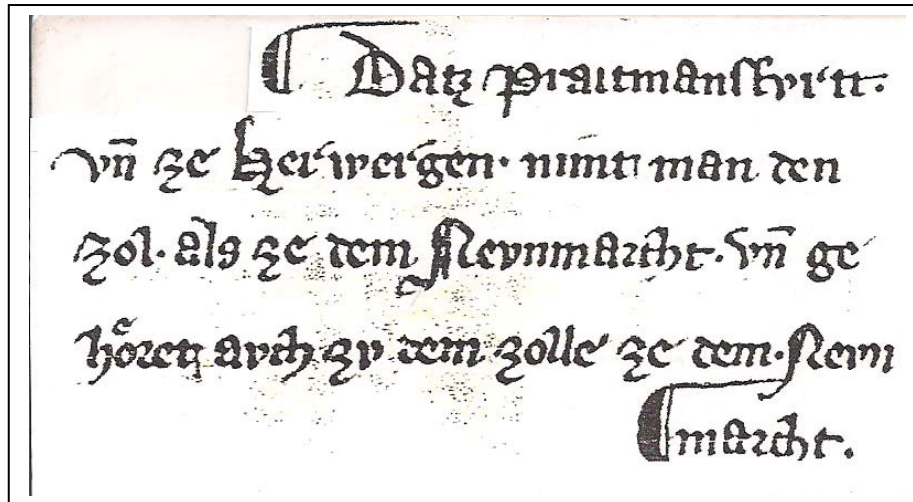 Datz Praitmansfvrtt.
vn̄ ze Herwergen· nimt man den
zol· als ze dem Nevnmarcht· vn̄ ge
hoͤrent avch zv dem zolle ze dem· Nevn
marcht.